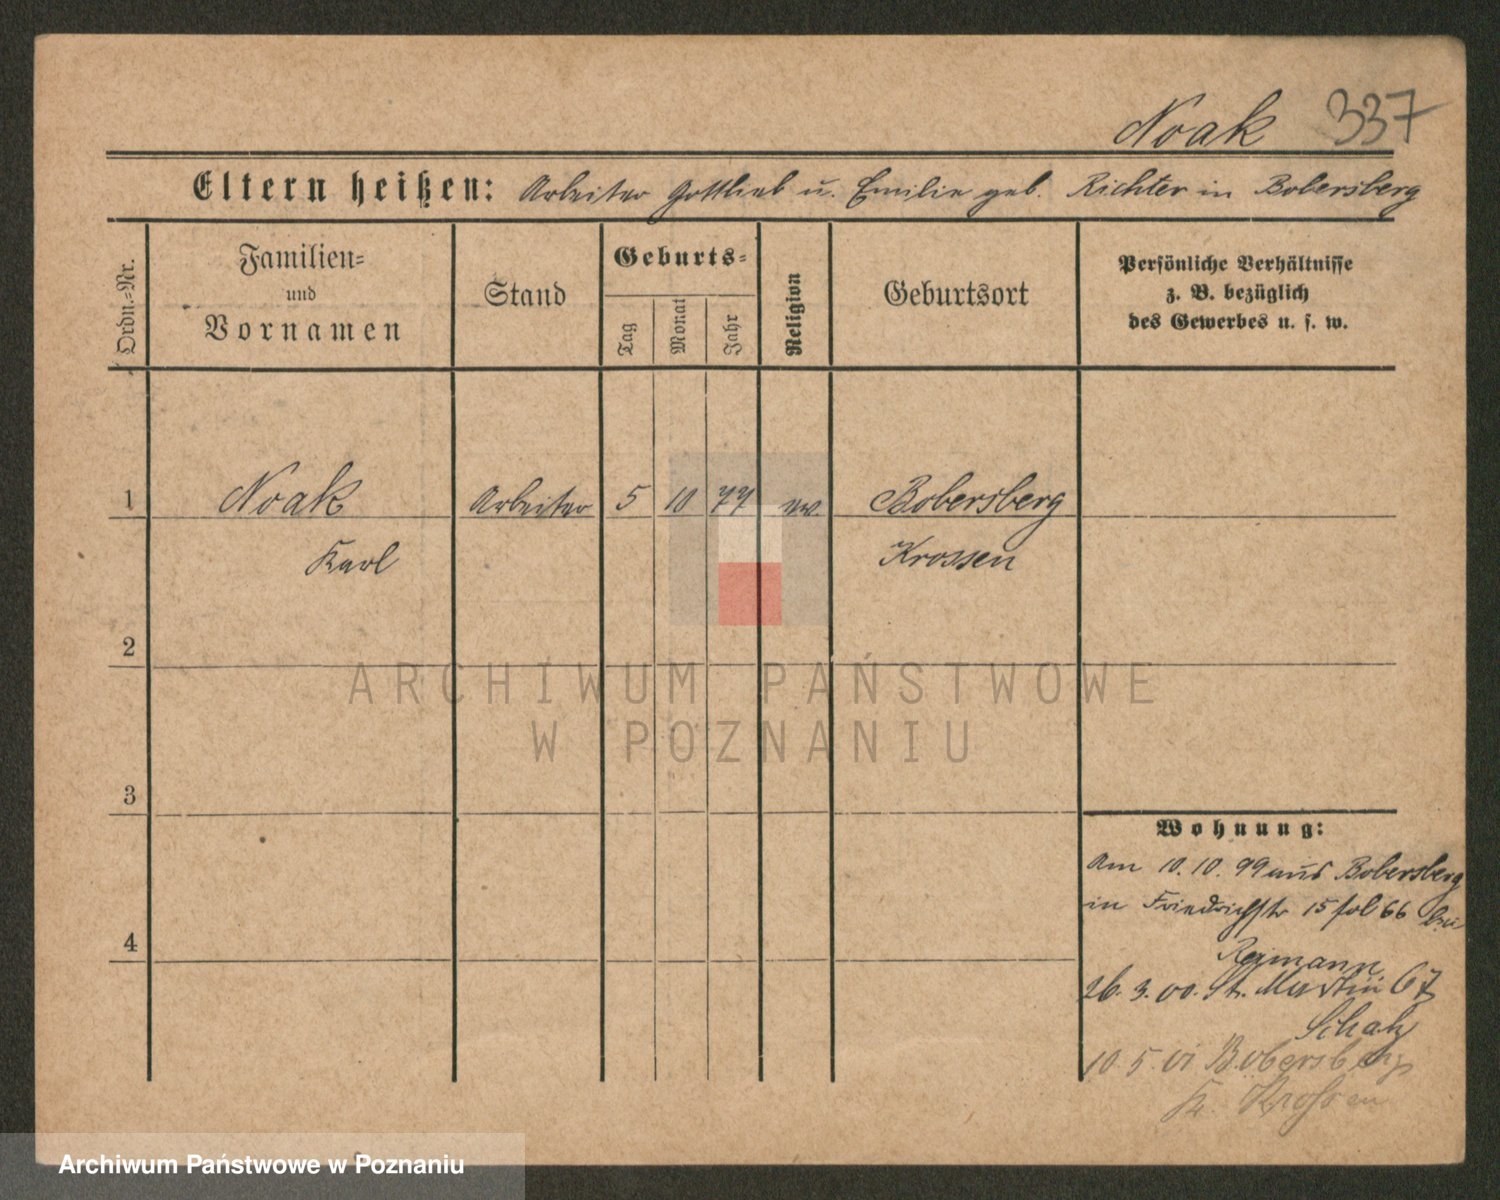 Noak 337
Eltern heißen: Arbeiter Gottlieb u. Emilie geb. Richter in Bobersberg
Ordn.=Nr.
Familien=
und
Vornamen
Stand
Geburts=
Tag
Monat
Jahr
Religion
Geburtsort
Persönliche Verhältnisse
z. B. bezüglich
des Gewerbes u. s. w.
1 Noak Arbeiter 5 10 77 ev. Bobersberg
Karl Krossen
2
ARCHIWUM PAŃSTWOWE
W POZNANIU
3
Wohnung:
Am 10. 10. 99 aus Bobersberg
in Friedrichstr 15 fol 66 bei
4
Reimann
26. 3. 00. St. Martin 67
Schatz
10. 5. 01 Bobersberg
Kr. Krossen
Archiwum Państwowe w Poznaniu